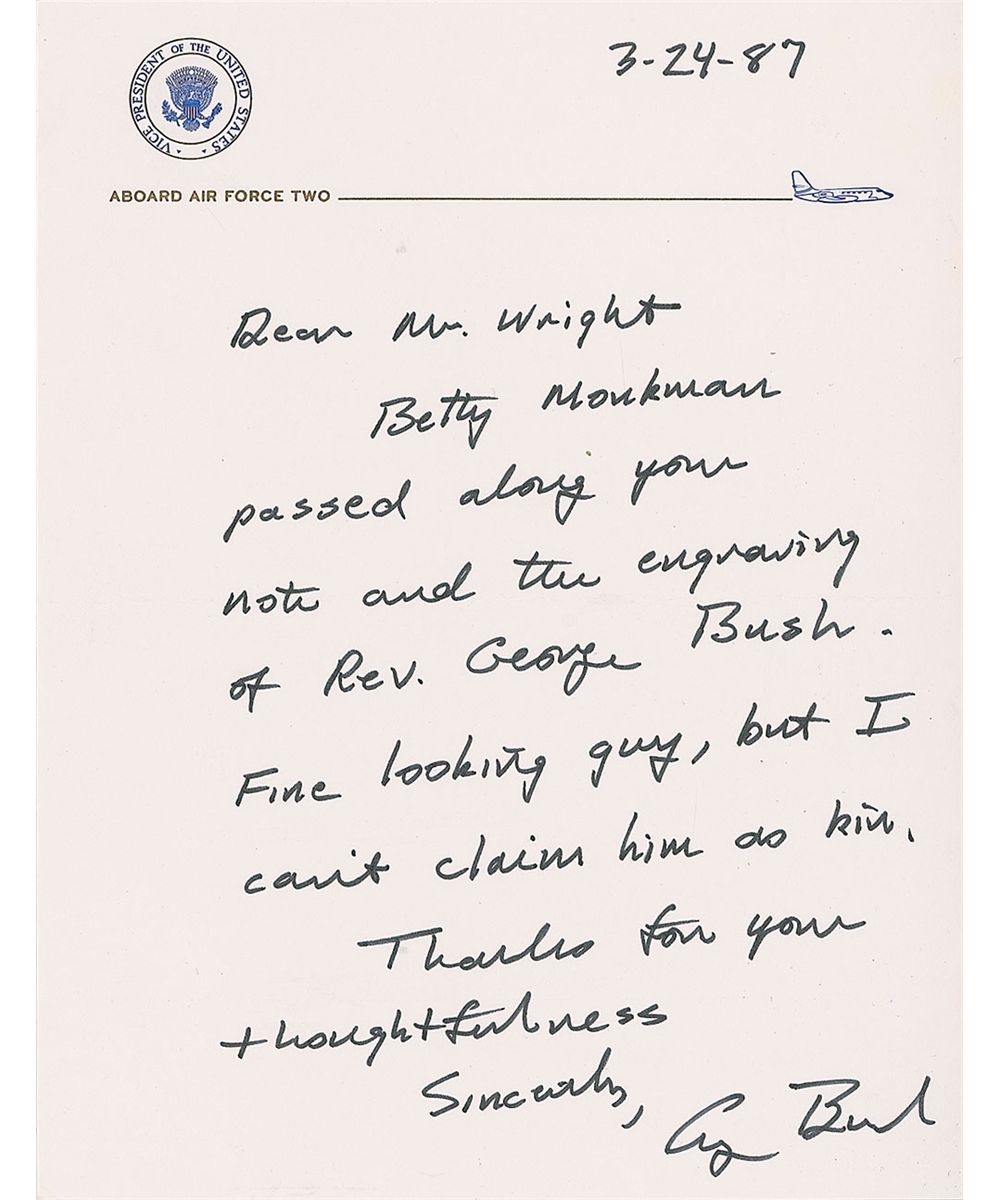 VICE PRESIDENT OF THE UNITED STATES
3-24-87
ABOARD AIR FORCE TWO
Dear Mr. Wright
Betty Monkman
passed along your
note and the engraving
of Rev. George Bush.
Fine looking guy, but I
can't claim him as kin.
Thanks for your
thoughtfulness
Sincerely,
George Bush